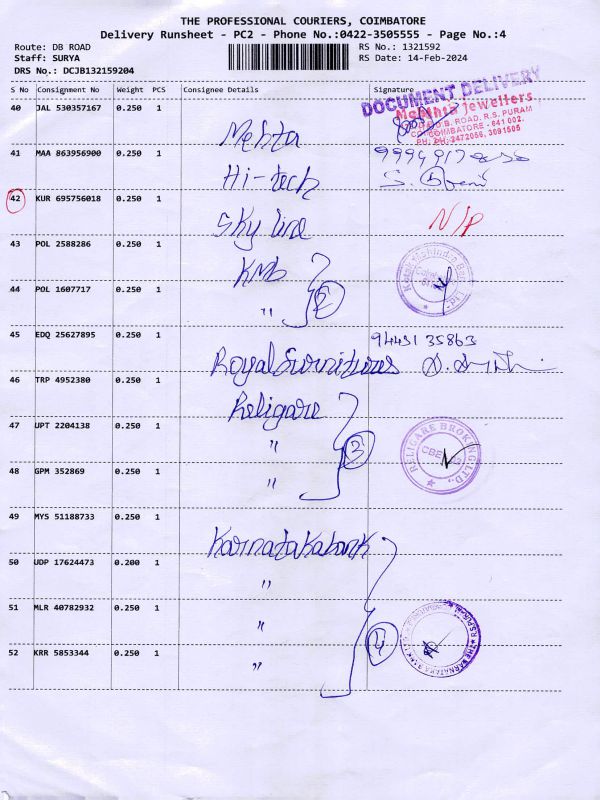 THE PROFESSIONAL COURIERS, COIMBATORE
Delivery Runsheet - PC2 - Phone No.:0422-3505555 - Page No.:4
Route: DB ROAD
RS No.: 1321592
Staff: SURYA
RS Date: 14-Feb-2024
DRS No.: DCJB132159204
S No Consignment No Weight PCS Consignee Details Signature
DOCUMENT DELIVERY
40 JAL 530357167 0.250 1 Mehta
Mehta Jewellers
D.B. ROAD, R.S. PURAM
COIMBATORE - 641 002.
PH: 2472056, 3091505
41 MAA 863956900 0.250 1 Hi-tech
42 KUR 695756018 0.250 1 Sky line N/P
43 POL 2588286 0.250 1 KMb
44 POL 1607717 0.250 1 " 2
45 EDQ 25627895 0.250 1 Royal Furnitures 94431 35863
46 TRP 4952380 0.250 1 Religare
47 UPT 2204138 0.250 1 " 3
RELIGARE BROKING LTD.,
48 GPM 352869 0.250 1 "
49 MYS 51188733 0.250 1 Karnataka bank
50 UDP 17624473 0.200 1 "
51 MLR 40782932 0.250 1 "
52 KRR 5853344 0.250 1 " 4